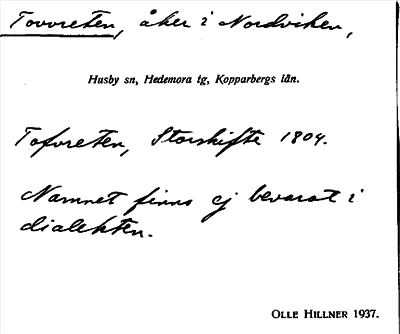 Tovvreten, åker i Nordviken,
Husby sn, Hedemora tg, Kopparbergs län.
Tofvreten, Storskifte 1804.
Namnet finns ej bevarat i
dialekten.
OLLE HILLNER 1937.